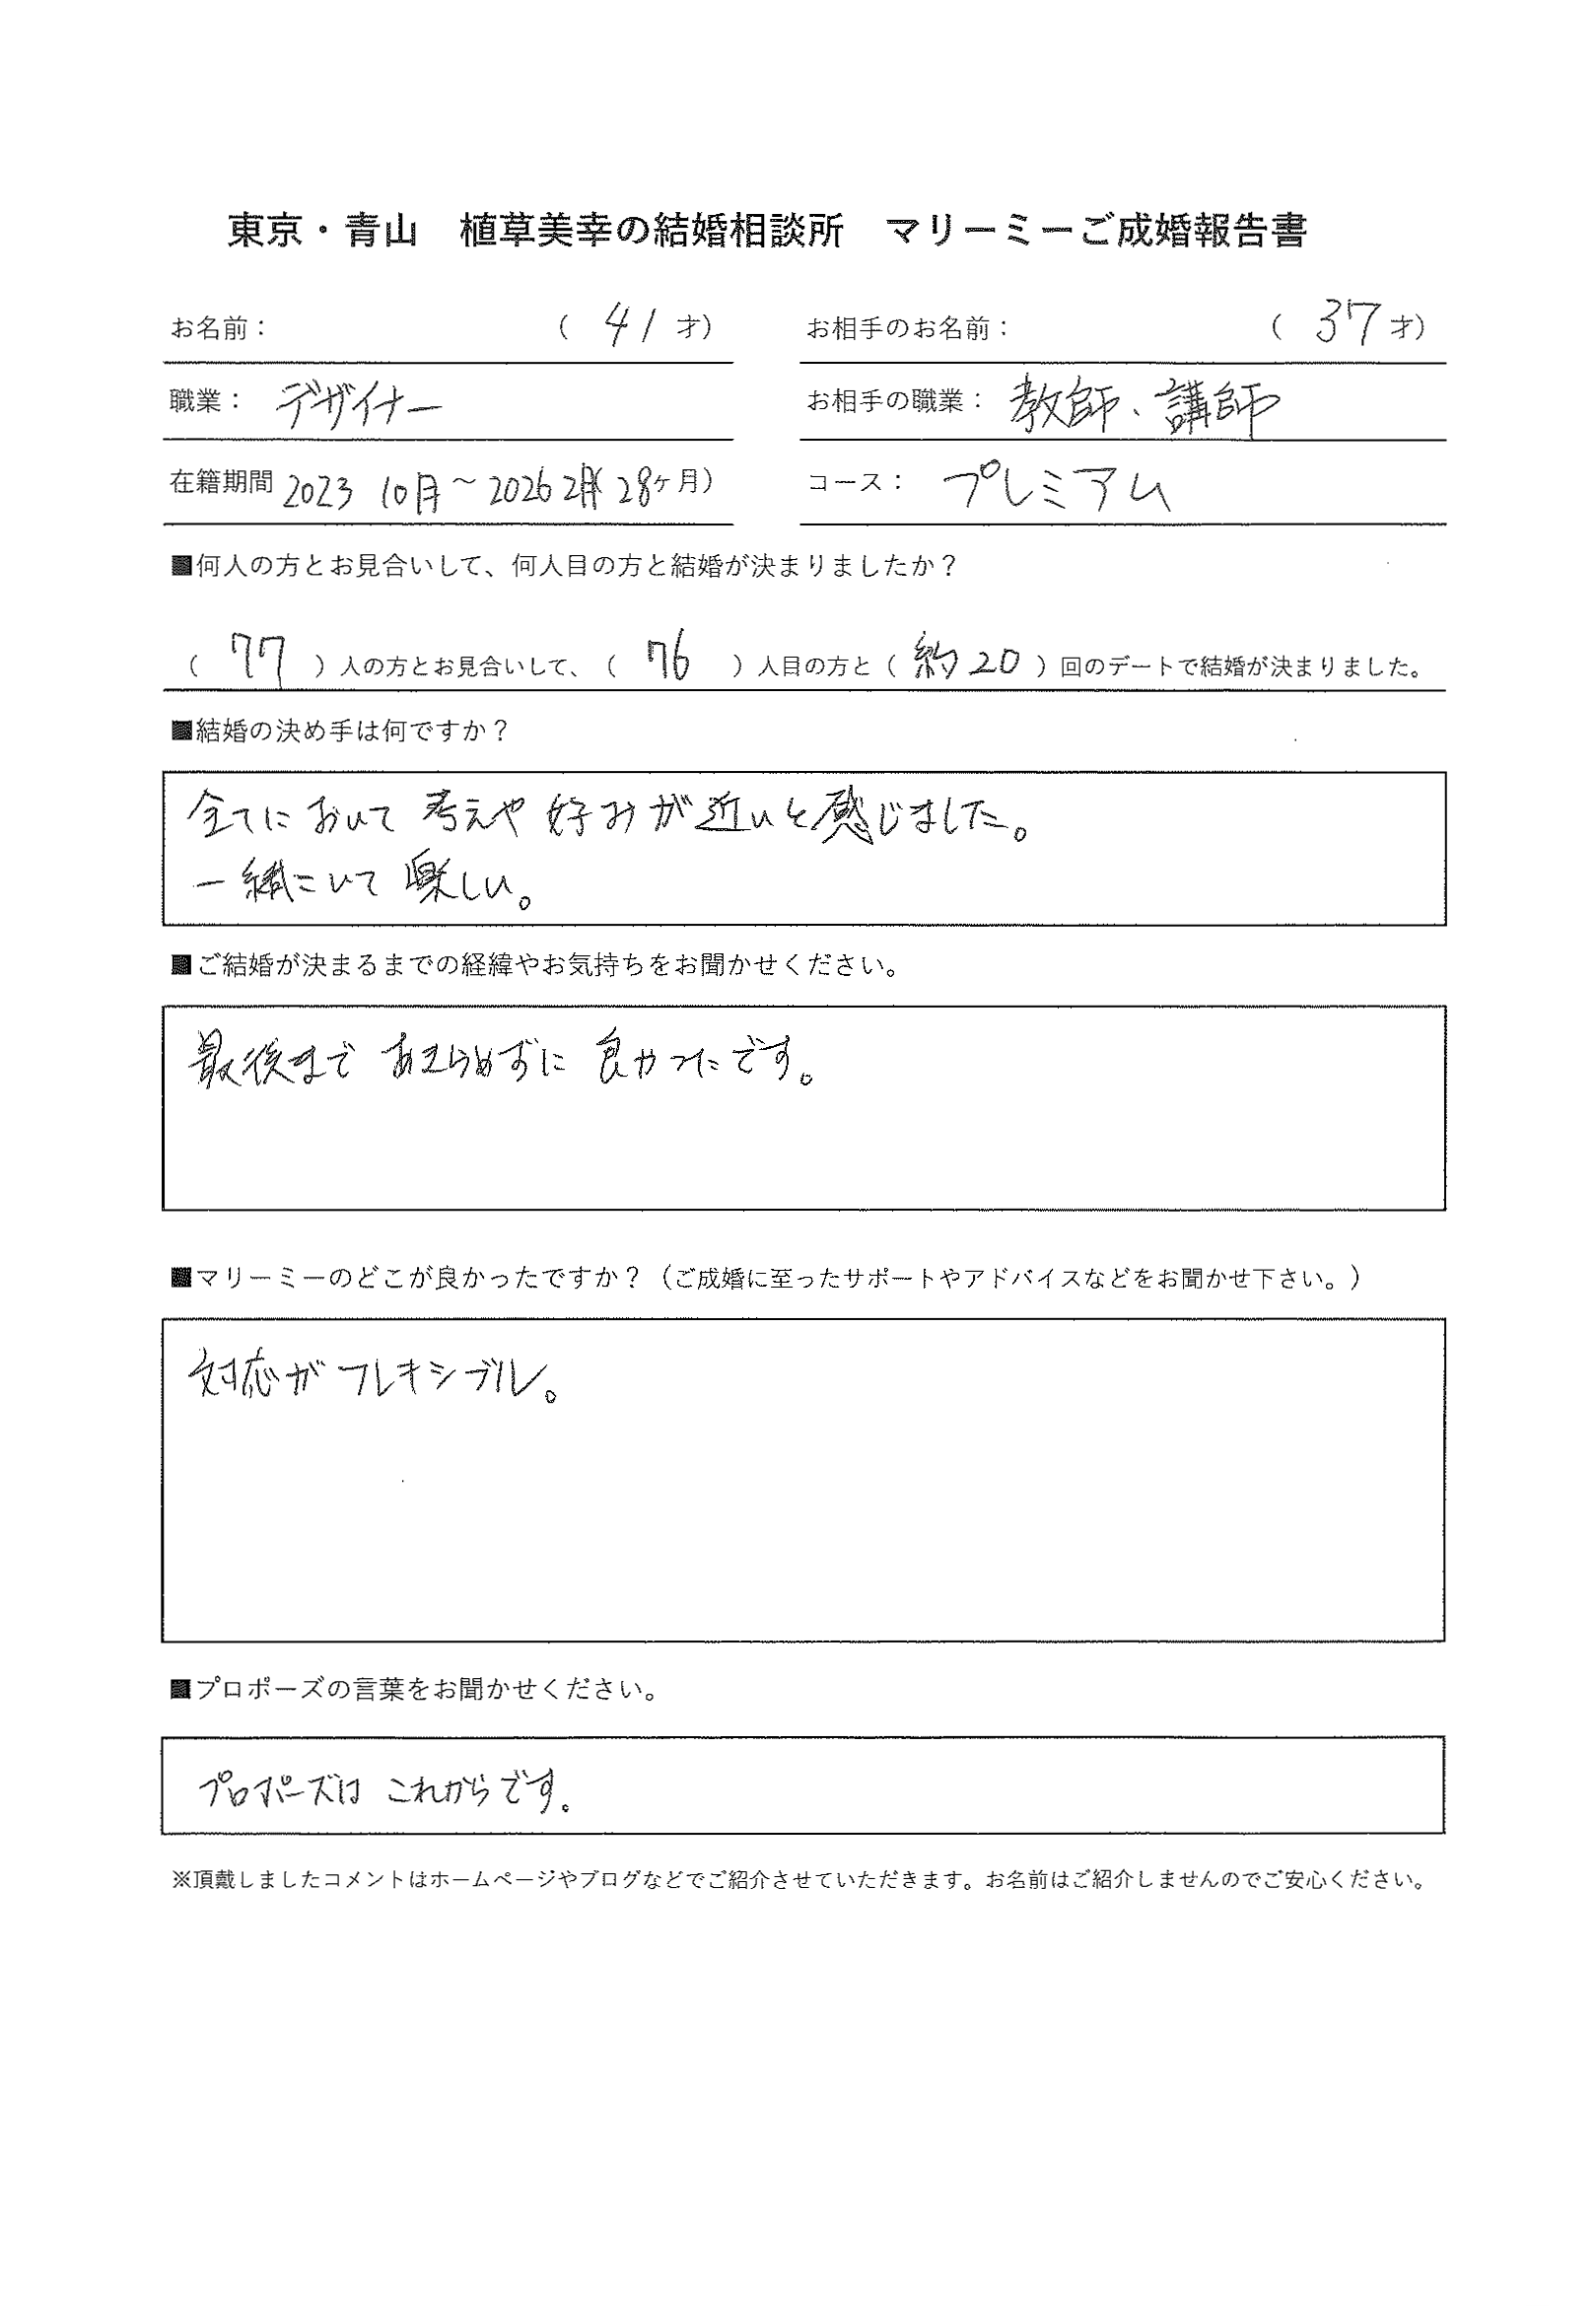 東京・青山　植草美幸の結婚相談所　マリーミーご成婚報告書
お名前：　（　41　才）　お相手のお名前：　（　37　才）
職業：　デザイナー　お相手の職業：　教師、講師
在籍期間　2023　10月～2026　2月（28ヶ月）　コース：　プレミアム
■何人の方とお見合いして、何人目の方と結婚が決まりましたか？
（　77　）人の方とお見合いして、（　76　）人目の方と（　約20　）回のデートで結婚が決まりました。
■結婚の決め手は何ですか？
全てにおいて考えや好みが近いと感じました。
一緒にいて楽しい。
■ご結婚が決まるまでの経緯やお気持ちをお聞かせください。
最後まであきらめずに良かったです。
■マリーミーのどこが良かったですか？（ご成婚に至ったサポートやアドバイスなどをお聞かせ下さい。）
対応がフレキシブル。
■プロポーズの言葉をお聞かせください。
プロポーズはこれからです。
※頂戴しましたコメントはホームページやブログなどでご紹介させていただきます。お名前はご紹介しませんのでご安心ください。